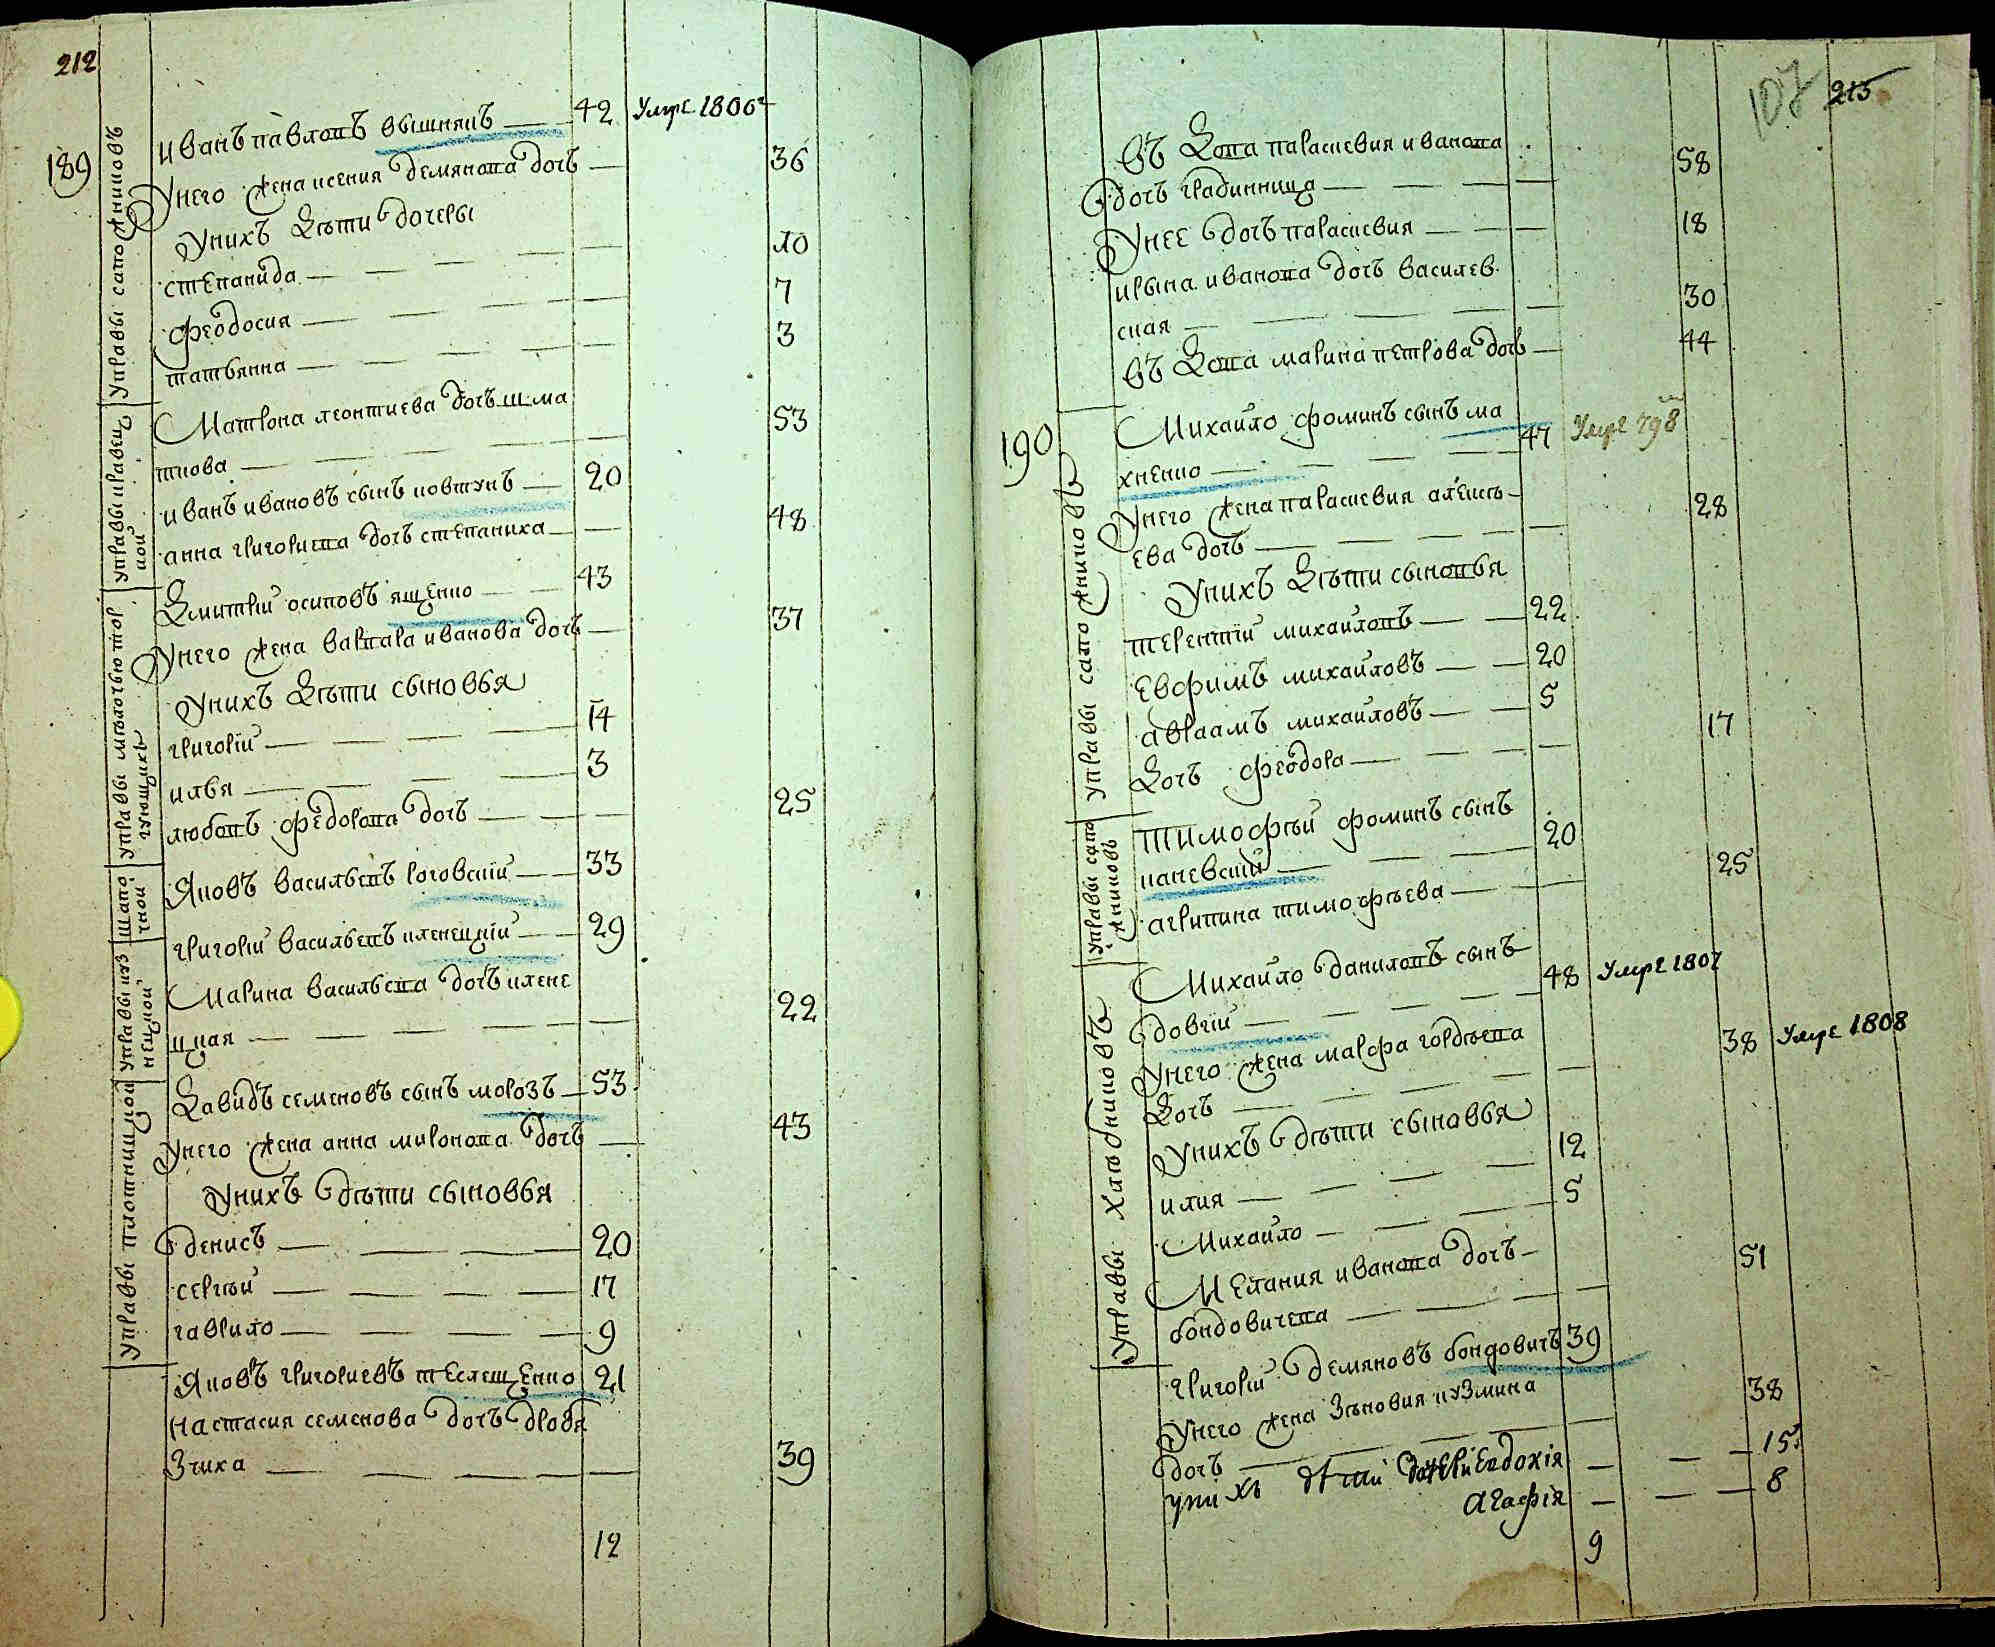 212
189
Управы сапожниковъ
Иванъ Павловъ Вышнякъ — 42 Умре 1806г
У него жена Ксения Демянова дочъ — 36
У нихъ дѣти дочеры
Степанида — 10
Феодосия — 7
Татьянна — 3
Управы кравецкой
Матрона Леонтиева дочъ Шма
ткова — 53
Иванъ Ивановъ сынъ Ковтунъ — 20
Анна Григориева дочъ Степаниха — 48
Управы мѣлочью торгующихъ
Дмитрій Осиповъ Ященко — 43
У него жена Варвара Иванова дочъ — 37
У нихъ дѣти сыновья
Григорій — 14
Илья — 3
Любовъ Федорова дочъ — 25
Управы шапочной
Яковъ Васильевъ Роговскій — 33
Управы кузнецкой
Григорій Васильевъ Кленецкій — 29
Марина Васильева дочъ Клене
цкая — 22
Управы плотницкой
Давидъ Семеновъ сынъ Морозъ — 53
У него жена Анна Миронова дочъ — 43
У нихъ дѣти сыновья
Денисъ — 20
Сергѣй — 17
Гаврило — 9
Яковъ Григориевъ Теслещенко 21
Настасия Семенова дочъ Дробя
зчиха — 39
12
107 213
въдова Параскевия Иванова
дочъ Градинница — 58
У нее дочъ Параскевия — 18
Ирына Иванова дочъ Василев
ская — 30
въдова Марина Петрова дочъ — 44
190
Управы сапожниковъ
Михайло Фоминъ сынъ Ма
хненко — 47 Умре 798
У него жена Параскевия Алексѣ
ева дочъ — 28
У нихъ дѣти сыновья
Терентій Михайловъ — 22
Евфимъ Михайловъ — 20
Авраамъ Михайловъ — 5
Дочъ Феодора — 17
Управы сапожниковъ
Тимофѣй Фоминъ сынъ
Каневскій — 20
Агрипина Тимофѣева — 25
Управы хлѣбниковъ
Михайло Даниловъ сынъ
Довгій — 48 Умре 1807
У него жена Марфа Гордѣева
дочъ — 38 Умре 1808
У нихъ дѣти сыновья
Илия — 12
Михайло — 5
Мелания Иванова дочъ
Бондовичева — 51
Григорій Демяновъ Бондовичъ 39
У него жена Зѣновия Кузмина
дочъ — 38
У нихъ дѣти дочери Евдокія — 15
Агафія — 8
9